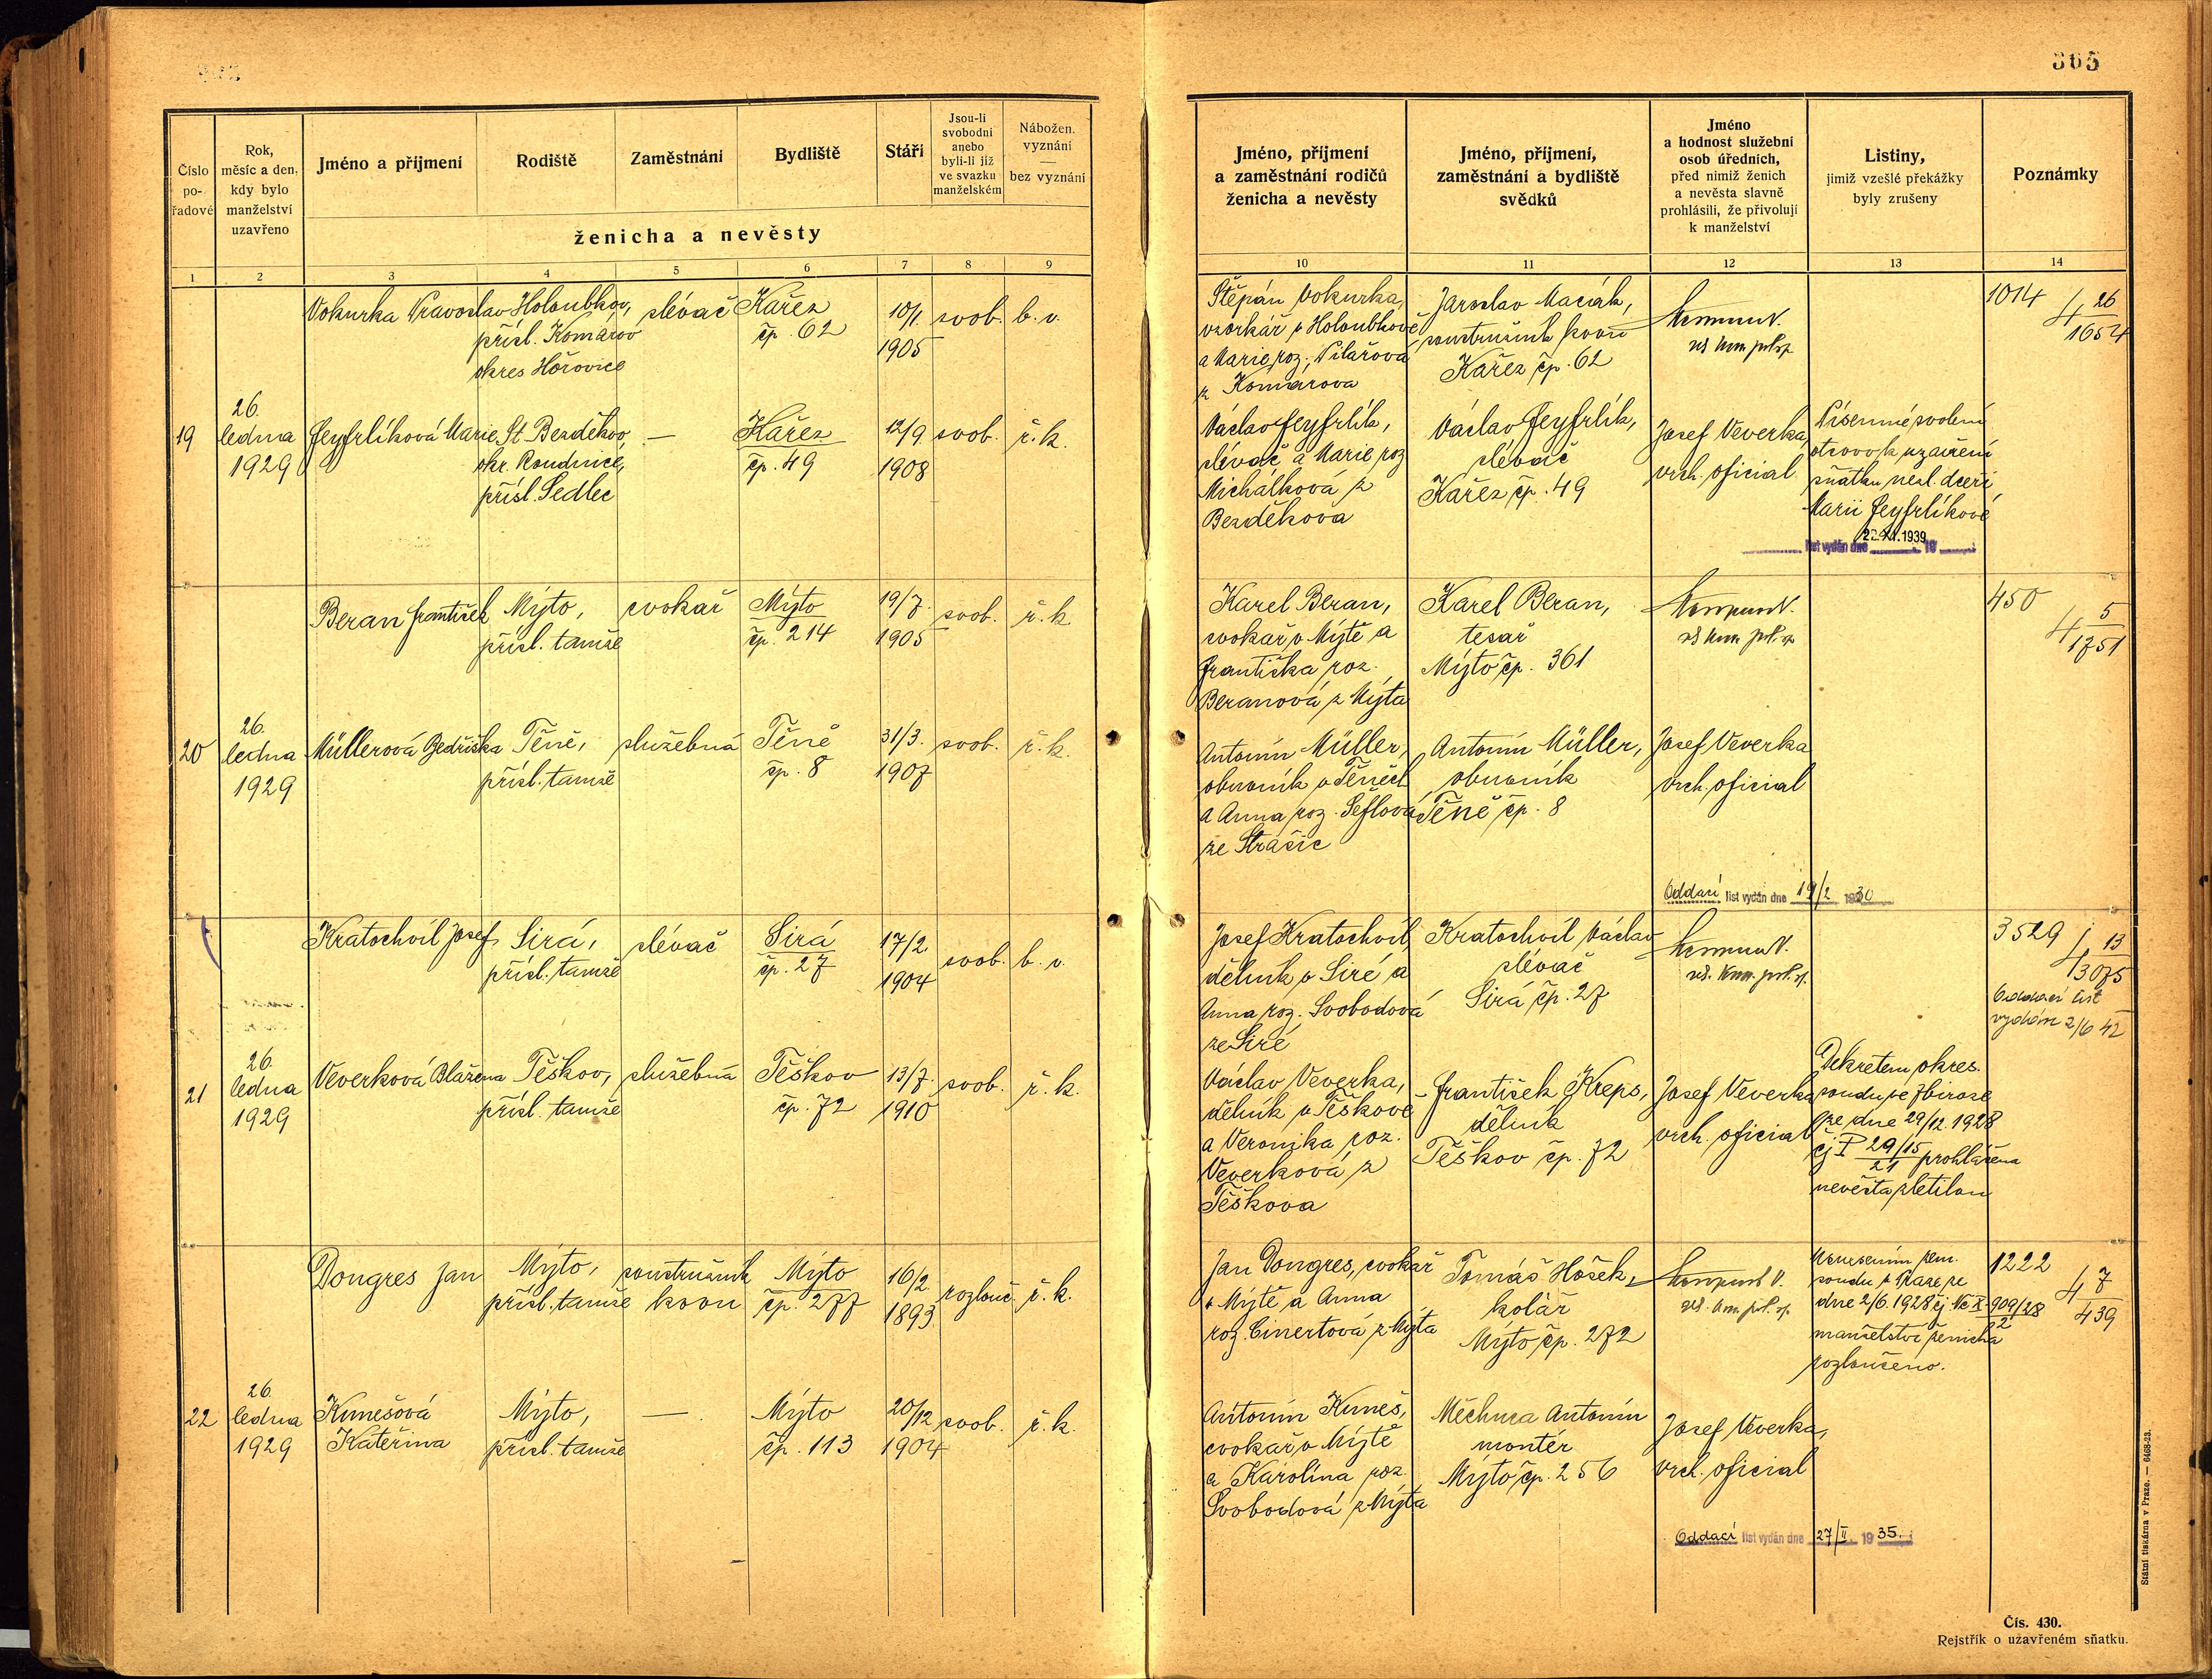 365
Číslo
po-
řadové
Rok,
měsíc a den,
kdy bylo
manželství
uzavřeno
Jméno a příjmení
Rodiště
Zaměstnání
Bydliště
Stáří
Jsou-li
svobodni
anebo
byli-li již
ve svazku
manželském
Nábožen.
vyznání
—
bez vyznání
ženicha a nevěsty
1 2 3 4 5 6 7 8 9
Vokurka Pravoslav Holoubkov, slévač Kařez 10/1. svob. b. v.
přísl. Komárov čp. 62 1905
okres Hořovice
26.
19 ledna Feyfrlíková Marie St. Bezděkov, — Kařez 12/9. svob. ř. k.
1929 okr. Roudnice, čp. 49 1908
přísl. Sedlec
Beran František Mýto, cvokař Mýto 19/7. svob. ř. k.
přísl. tamže čp. 214 1905
26.
20 ledna Müllerová Bedřiška Těně, služebná Těně 31/3. svob. ř. k.
1929 přísl. tamže čp. 8 1907
Kratochvíl Josef Sirá, slévač Sirá 17/2 svob. b. v.
přísl. tamže čp. 27 1904
26.
21 ledna Veverková Blažena Těškov, služebná Těškov 13/7. svob. ř. k.
1929 přísl. tamže čp. 72 1910
Dongres Jan Mýto, soustružník Mýto 16/2. rozlouč. ř. k.
přísl. tamže kovu čp. 277 1893
26.
22 ledna Kunešová Mýto, — Mýto 20/12 svob. ř. k.
1929 Kateřina přísl. tamže čp. 113 1904
Jméno, příjmení
a zaměstnání rodičů
ženicha a nevěsty
Jméno, příjmení,
zaměstnání a bydliště
svědků
Jméno
a hodnost služební
osob úředních,
před nimiž ženich
a nevěsta slavně
prohlásili, že přivolují
k manželství
Listiny,
jimiž vzešlé překážky
byly zrušeny
Poznámky
10 11 12 13 14
Štěpán Vokurka,
vzorkář v Holoubkově
a Marie, roz. Pilařová
z Komárova
Jaroslav Maciák,
soustružník kovu
Kařez čp. 62
1014 4 26
1654
Václav Feyfrlík,
slévač a Marie roz.
Michálková z
Bezděkova
Václav Feyfrlík,
slévač
Kařez čp. 49
Josef Veverka,
vrch. oficial
Písemné svolení
otcovo k uzavření
sňatku nezl. dceři
Marii Feyfrlíkové
22. XI. 1939
list vydán dne 19
Karel Beran,
cvokař v Mýtě a
Františka roz.
Beranová z Mýta
Karel Beran,
tesař
Mýto čp. 361
450 4 5
1751
Antonín Müller,
obuvník v Těních
a Anna roz. Šeflová
ze Strašic
Antonín Müller,
obuvník
Těně čp. 8
Josef Veverka
vrch. oficial
Oddací list vydán dne 19/2 1930
Josef Kratochvíl,
dělník v Siré a
Anna roz. Svobodová
ze Siré
Kratochvíl Václav
slévač
Sirá čp. 27
3529 4 13
3075
Oddací list
vydán 2/6 42
Václav Veverka,
dělník v Těškově
a Veronika roz.
Veverková z
Těškova
František Kreps,
dělník
Těškov čp. 72
Josef Veverka
vrch. oficial
Dekretem okres.
soudu ve Zbiroze
ze dne 29/12. 1928
čj P 29/15 prohlášena
21
nevěsta zletilou
Jan Dongres, cvokař
v Mýtě a Anna
roz. Cinertová z Mýta
Tomáš Hošek,
kolář
Mýto čp. 272
Usnesením zem.
soudu v Praze ze
dne 2/6. 1928 čj Nc X 909/28
2
manželství ženicha
rozloučeno.
1222 4 7
439
Antonín Kuneš,
cvokař v Mýtě
a Karolina roz.
Svobodová z Mýta
Měchura Antonín
montér
Mýto čp. 256
Josef Veverka,
vrch. oficial
Oddací list vydán dne 27/II 1935.
Státní tiskárna v Praze. — 6468-23.
Čís. 430.
Rejstřík o uzavřeném sňatku.